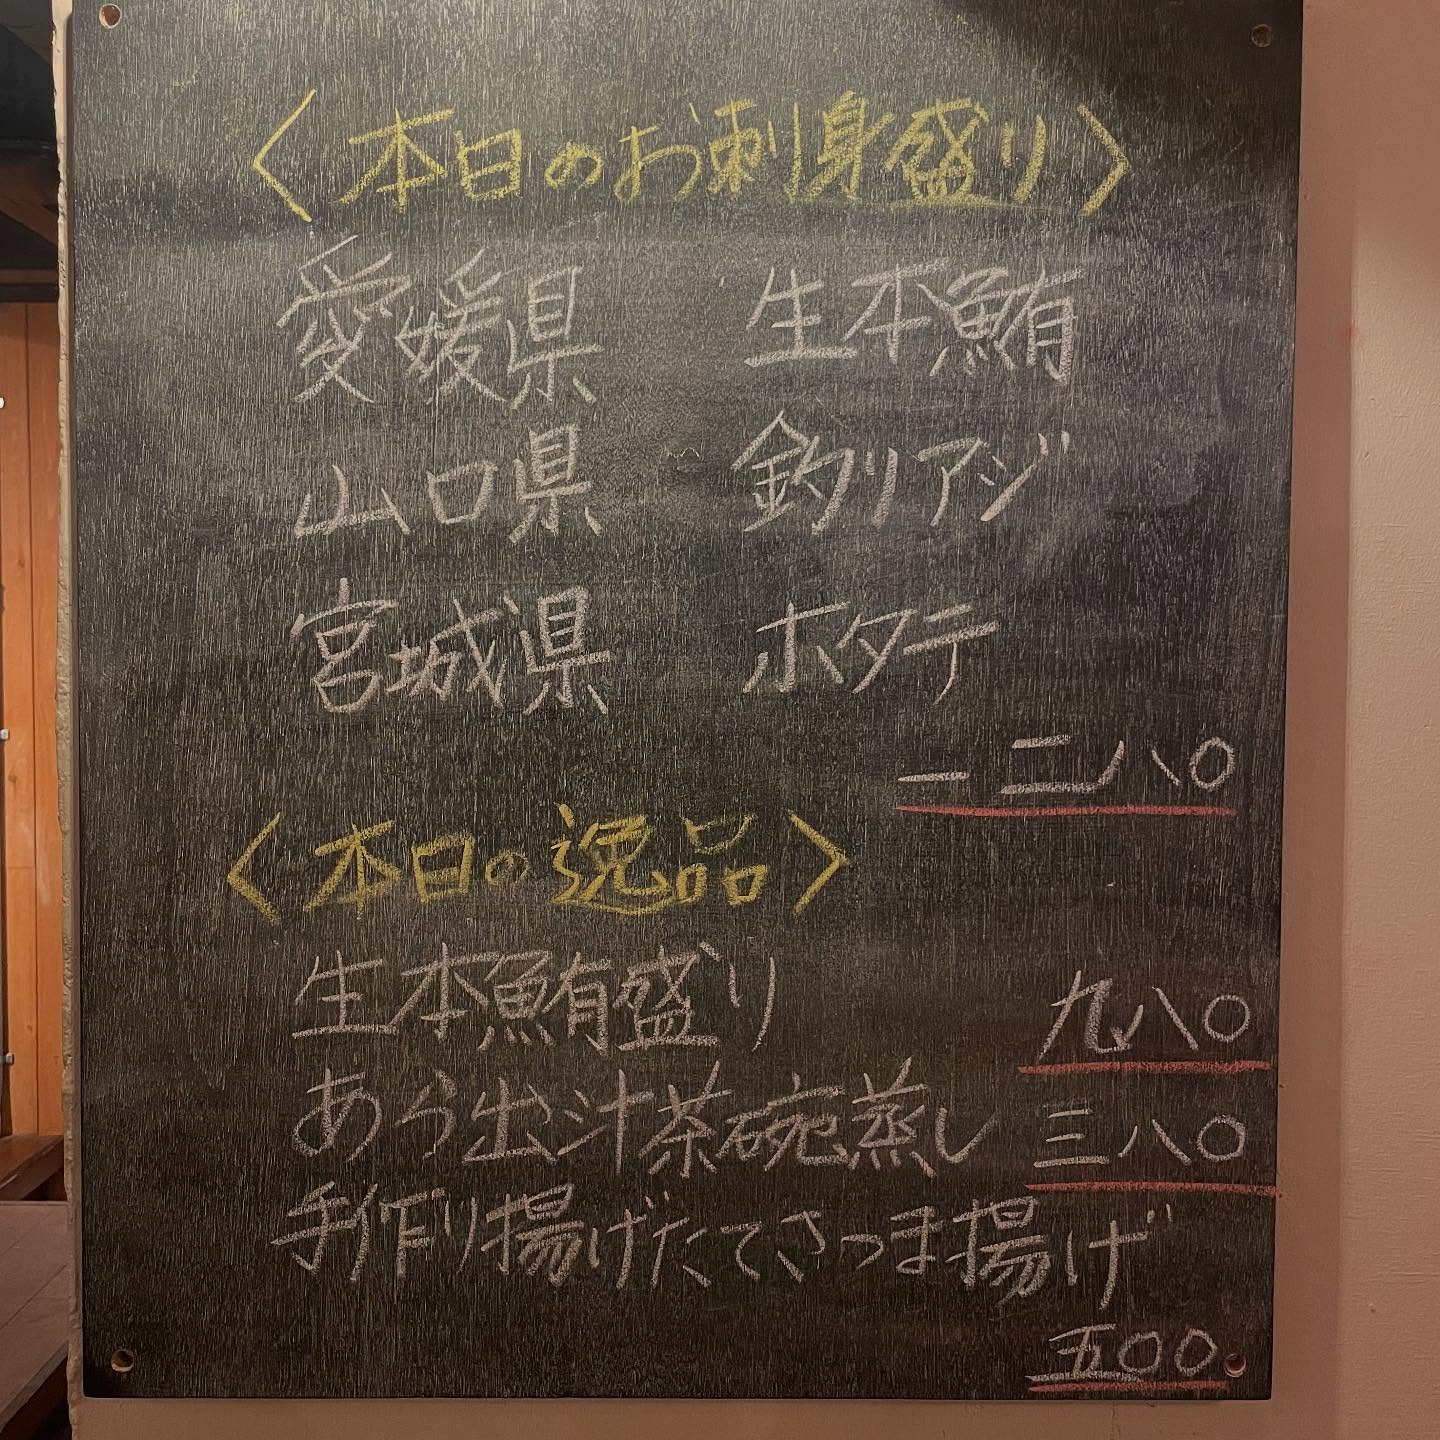 〈本日のお刺身盛り〉
愛媛県 生本鮪
山口県 釣りアジ
宮城県 ホタテ
一二八〇
〈本日の逸品〉
生本鮪盛り 九八〇
あら出汁茶碗蒸し 三八〇
手作り揚げたてさつま揚げ
五〇〇